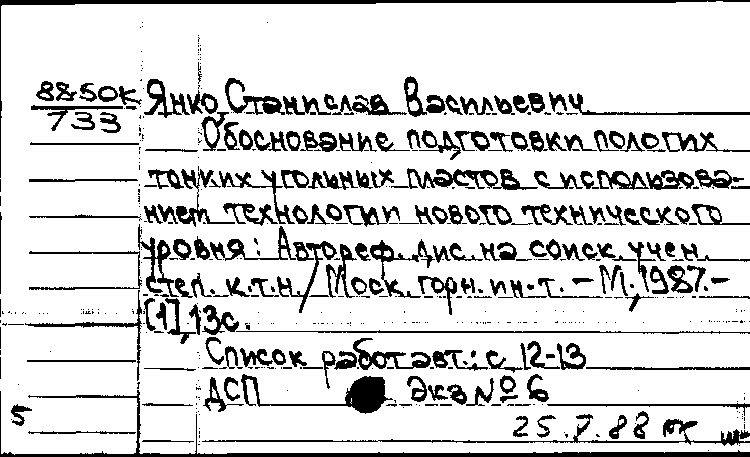 88-50к
733
Янко, Станислав Васильевич.
Обоснование подготовки пологих
тонких угольных пластов с использова-
нием технологии нового технического
уровня: Автореф. дис. на соиск. учен.
степ. к.т.н. / Моск. горн. ин-т. - М., 1987.-
[1], 13с.
Список работ авт.: с. 12-13
ДСП Экз № 6
5
25.V.88